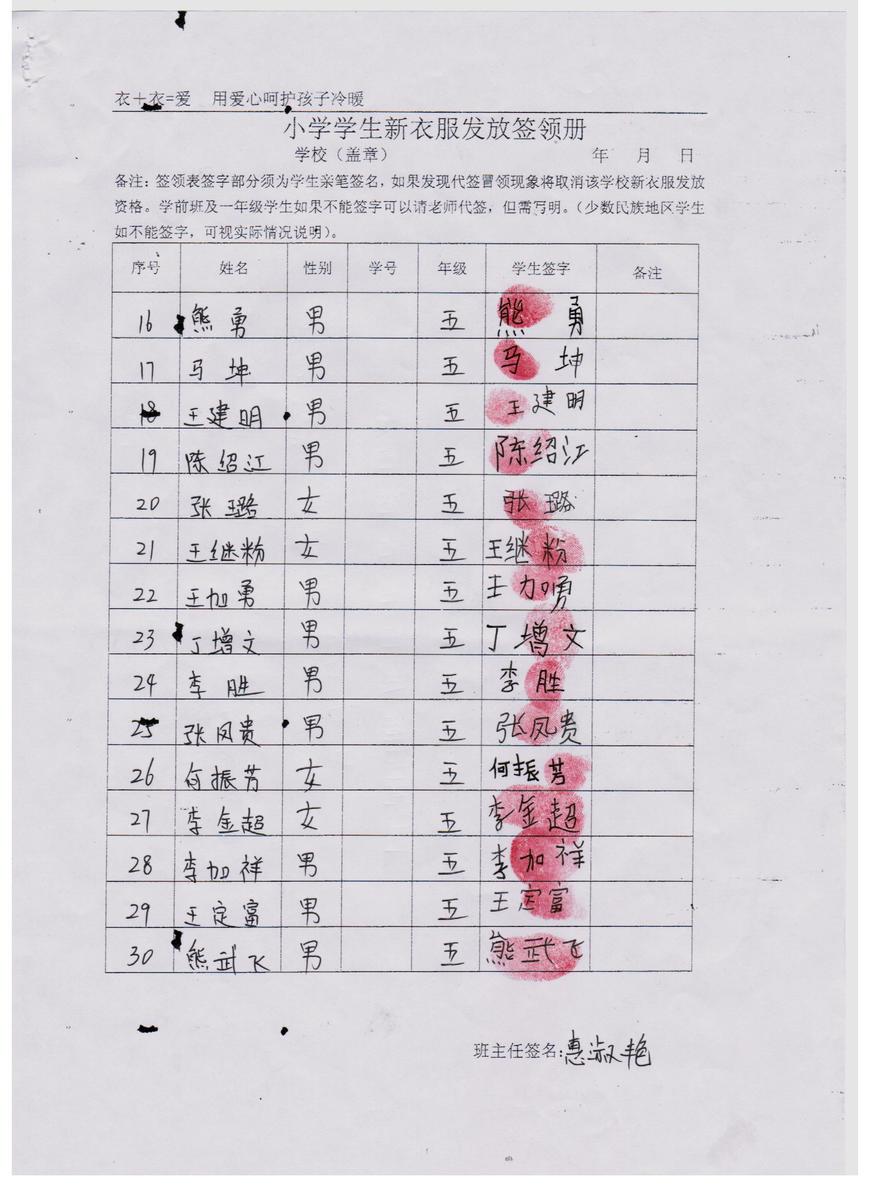 衣+衣=爱 用爱心呵护孩子冷暖
小学学生新衣服发放签领册
学校（盖章） 年 月 日
备注：签领表签字部分须为学生亲笔签名，如果发现代签冒领现象将取消该学校新衣服发放
资格。学前班及一年级学生如果不能签字可以请老师代签，但需写明。（少数民族地区学生
如不能签字，可视实际情况说明）。
序号 姓名 性别 学号 年级 学生签字 备注
16 熊勇 男 五 熊勇
17 马坤 男 五 马坤
18 王建明 男 五 王建明
19 陈绍江 男 五 陈绍江
20 张璐 女 五 张璐
21 王继粉 女 五 王继粉
22 王加勇 男 五 王加勇
23 丁增文 男 五 丁增文
24 李胜 男 五 李胜
25 张凤贵 男 五 张凤贵
26 何振芳 女 五 何振芳
27 李金超 女 五 李金超
28 李加祥 男 五 李加祥
29 王定富 男 五 王定富
30 熊武飞 男 五 熊武飞
班主任签名：惠淑艳